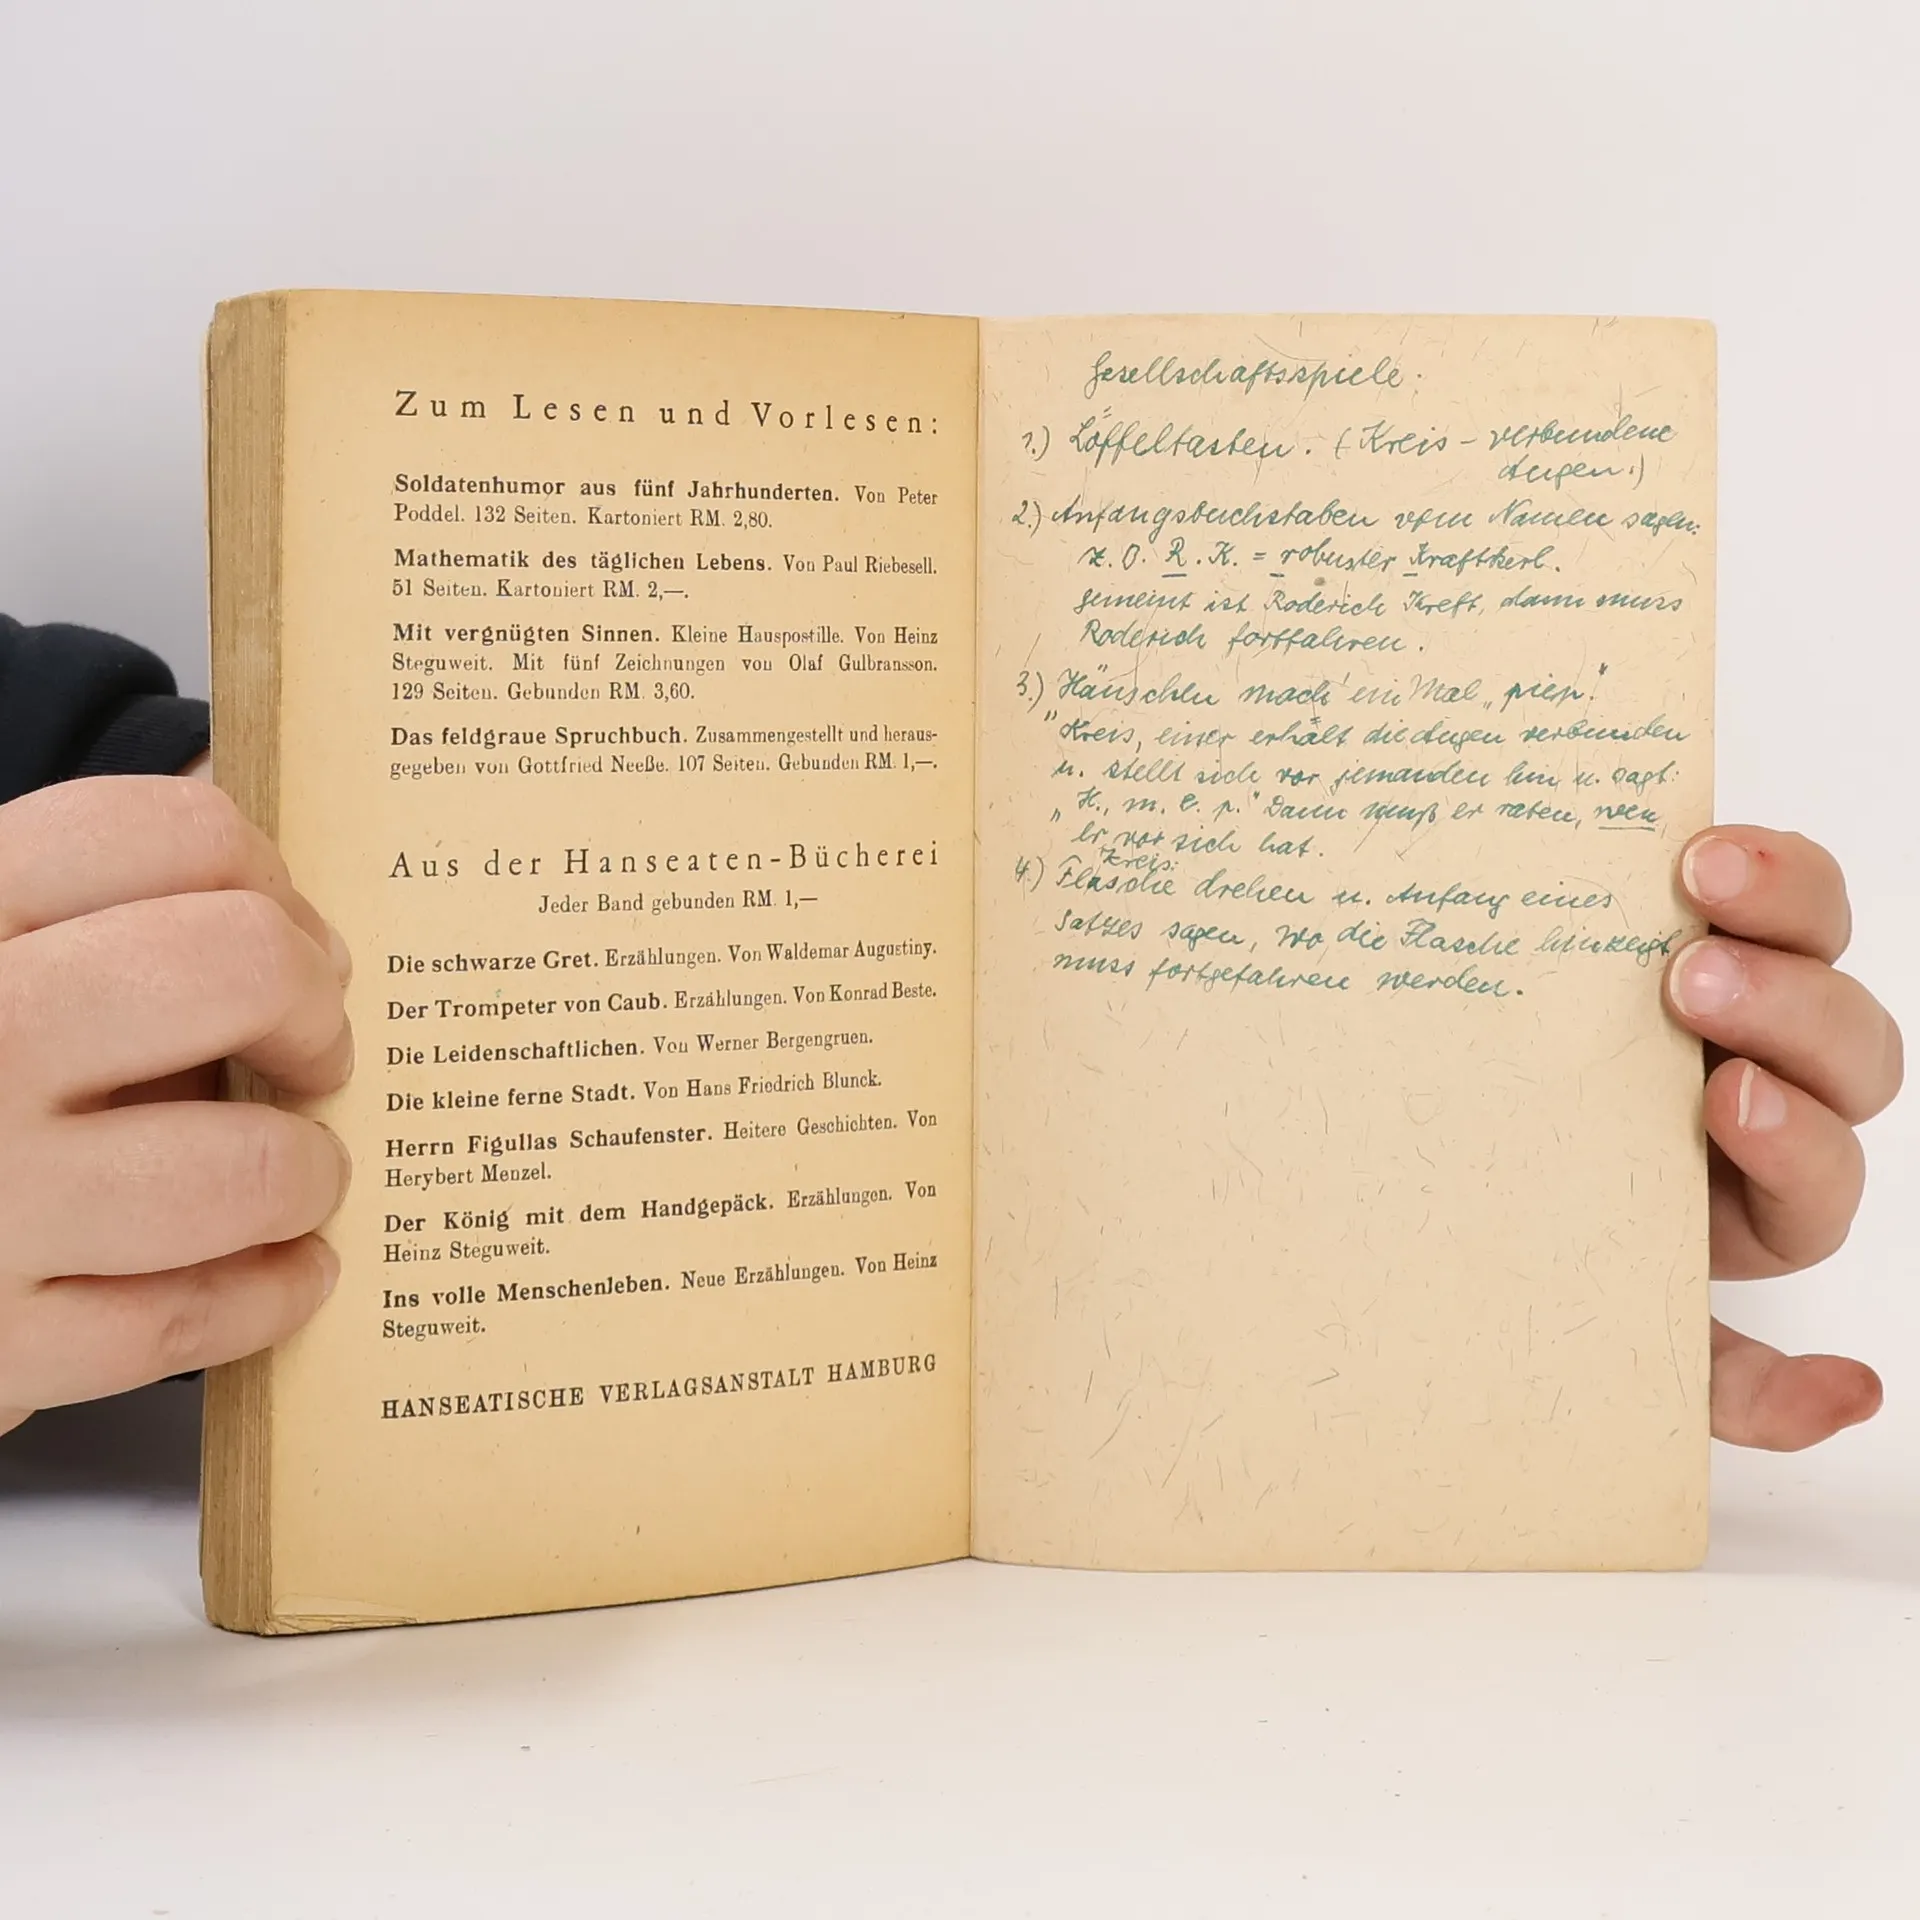 Zum Lesen und Vorlesen:
Soldatenhumor aus fünf Jahrhunderten. Von Peter
Poddel. 132 Seiten. Kartoniert RM. 2,80.
Mathematik des täglichen Lebens. Von Paul Riebesell.
51 Seiten. Kartoniert RM. 2,—.
Mit vergnügten Sinnen. Kleine Hauspostille. Von Heinz
Steguweit. Mit fünf Zeichnungen von Olaf Gulbransson.
129 Seiten. Gebunden RM. 3,60.
Das feldgraue Spruchbuch. Zusammengestellt und heraus-
gegeben von Gottfried Neeße. 107 Seiten. Gebunden RM. 1,—.
Aus der Hanseaten-Bücherei
Jeder Band gebunden RM. 1,—
Die schwarze Gret. Erzählungen. Von Waldemar Augustiny.
Der Trompeter von Caub. Erzählungen. Von Konrad Beste.
Die Leidenschaftlichen. Von Werner Bergengruen.
Die kleine ferne Stadt. Von Hans Friedrich Blunck.
Herrn Figullas Schaufenster. Heitere Geschichten. Von
Herybert Menzel.
Der König mit dem Handgepäck. Erzählungen. Von
Heinz Steguweit.
Ins volle Menschenleben. Neue Erzählungen. Von Heinz
Steguweit.
HANSEATISCHE VERLAGSANSTALT HAMBURG
Gesellschaftsspiele:
1.) Löffeltasten. (Kreis – verbundene
Augen.)
2.) Anfangsbuchstaben vom Namen sagen:
z. B. R. K. = robuster Kraftkerl.
gemeint ist Roderich Kreft, dann muss
Roderich fortfahren.
3.) "Hänschen mach' ein Mal „piep."
Kreis, einer erhält die Augen verbunden
u. stellt sich vor jemanden hin u. sagt:
„H., m. e. p." Dann muß er raten, wen
er vor sich hat.
Kreis:
4.) Flasche drehen u. Anfang eines
Satzes sagen, wo die Flasche hinzeigt
muss fortgefahren werden.